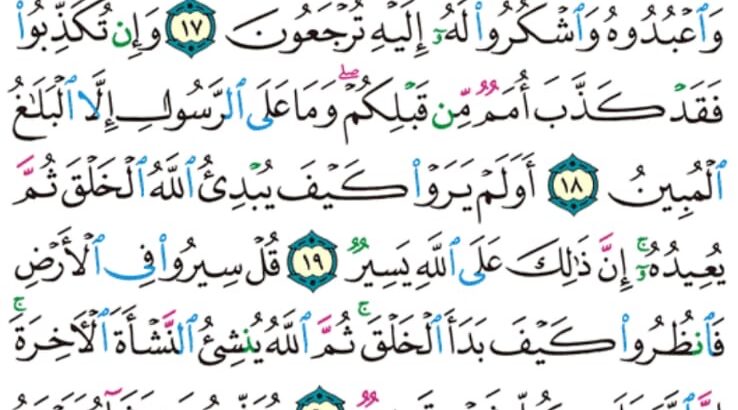 وَٱعْبُدُوهُ وَٱشْكُرُوا۟ لَهُۥٓ إِلَيْهِ تُرْجَعُونَ ١٧ وَإِن تُكَذِّبُوا۟
فَقَدْ كَذَّبَ أُمَمٌ مِّن قَبْلِكُمْ ۖ وَمَا عَلَى ٱلرَّسُولِ إِلَّا ٱلْبَلَٰغُ
ٱلْمُبِينُ ١٨ أَوَلَمْ يَرَوْا۟ كَيْفَ يُبْدِئُ ٱللَّهُ ٱلْخَلْقَ ثُمَّ
يُعِيدُهُۥٓ ۚ إِنَّ ذَٰلِكَ عَلَى ٱللَّهِ يَسِيرٌ ١٩ قُلْ سِيرُوا۟ فِى ٱلْأَرْضِ
فَٱنظُرُوا۟ كَيْفَ بَدَأَ ٱلْخَلْقَ ۚ ثُمَّ ٱللَّهُ يُنشِئُ ٱلنَّشْأَةَ ٱلْءَاخِرَةَ ۚ